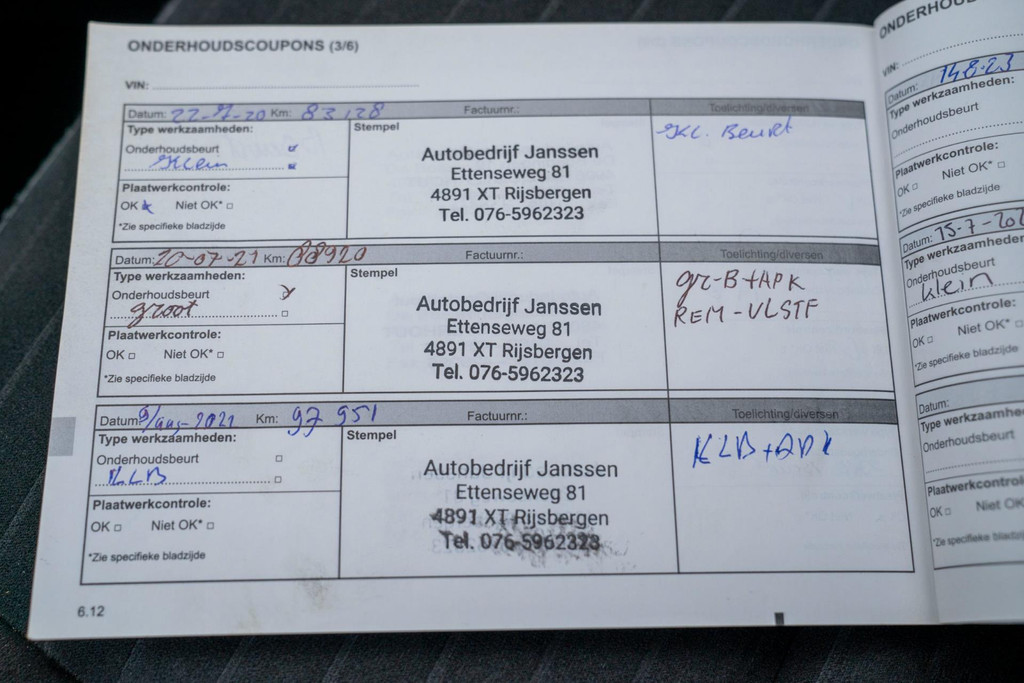 ONDERHOUDSCOUPONS (3/6)
VIN:
Datum: 22-7-20 Km: 83128 Factuurnr.: Toelichting/diversen
Type werkzaamheden: Stempel
Kl. Beurt
Onderhoudsbeurt
Klein
Autobedrijf Janssen
Ettenseweg 81
4891 XT Rijsbergen
Tel. 076-5962323
Plaatwerkcontrole:
OK Niet OK*
*Zie specifieke bladzijde
Datum: 20-07-21 Km: 88920 Factuurnr.: Toelichting/diversen
Type werkzaamheden: Stempel
gr-B+APK
REM-VLSTF
Onderhoudsbeurt
groot
Autobedrijf Janssen
Ettenseweg 81
4891 XT Rijsbergen
Tel. 076-5962323
Plaatwerkcontrole:
OK Niet OK*
*Zie specifieke bladzijde
Datum: 9/aug-2021 Km: 97 951 Factuurnr.: Toelichting/diversen
Type werkzaamheden: Stempel
KLB+APK
Onderhoudsbeurt
KLB
Autobedrijf Janssen
Ettenseweg 81
4891 XT Rijsbergen
Tel. 076-5962323
Plaatwerkcontrole:
OK Niet OK*
*Zie specifieke bladzijde
6.12
VIN:
Datum: 14-8-23
Type werkzaamheden:
Onderhoudsbeurt
Plaatwerkcontrole:
OK Niet OK*
*Zie specifieke bladzijde
Datum: 15-7-
Type werkzaamheden
Onderhoudsbeurt
klein
Plaatwerkcontrole:
OK Niet OK*
*Zie specifieke bladzijde
Datum:
Type werkzaamhe
Onderhoudsbeurt
Plaatwerkcontrole
OK Niet OK
*Zie specifieke